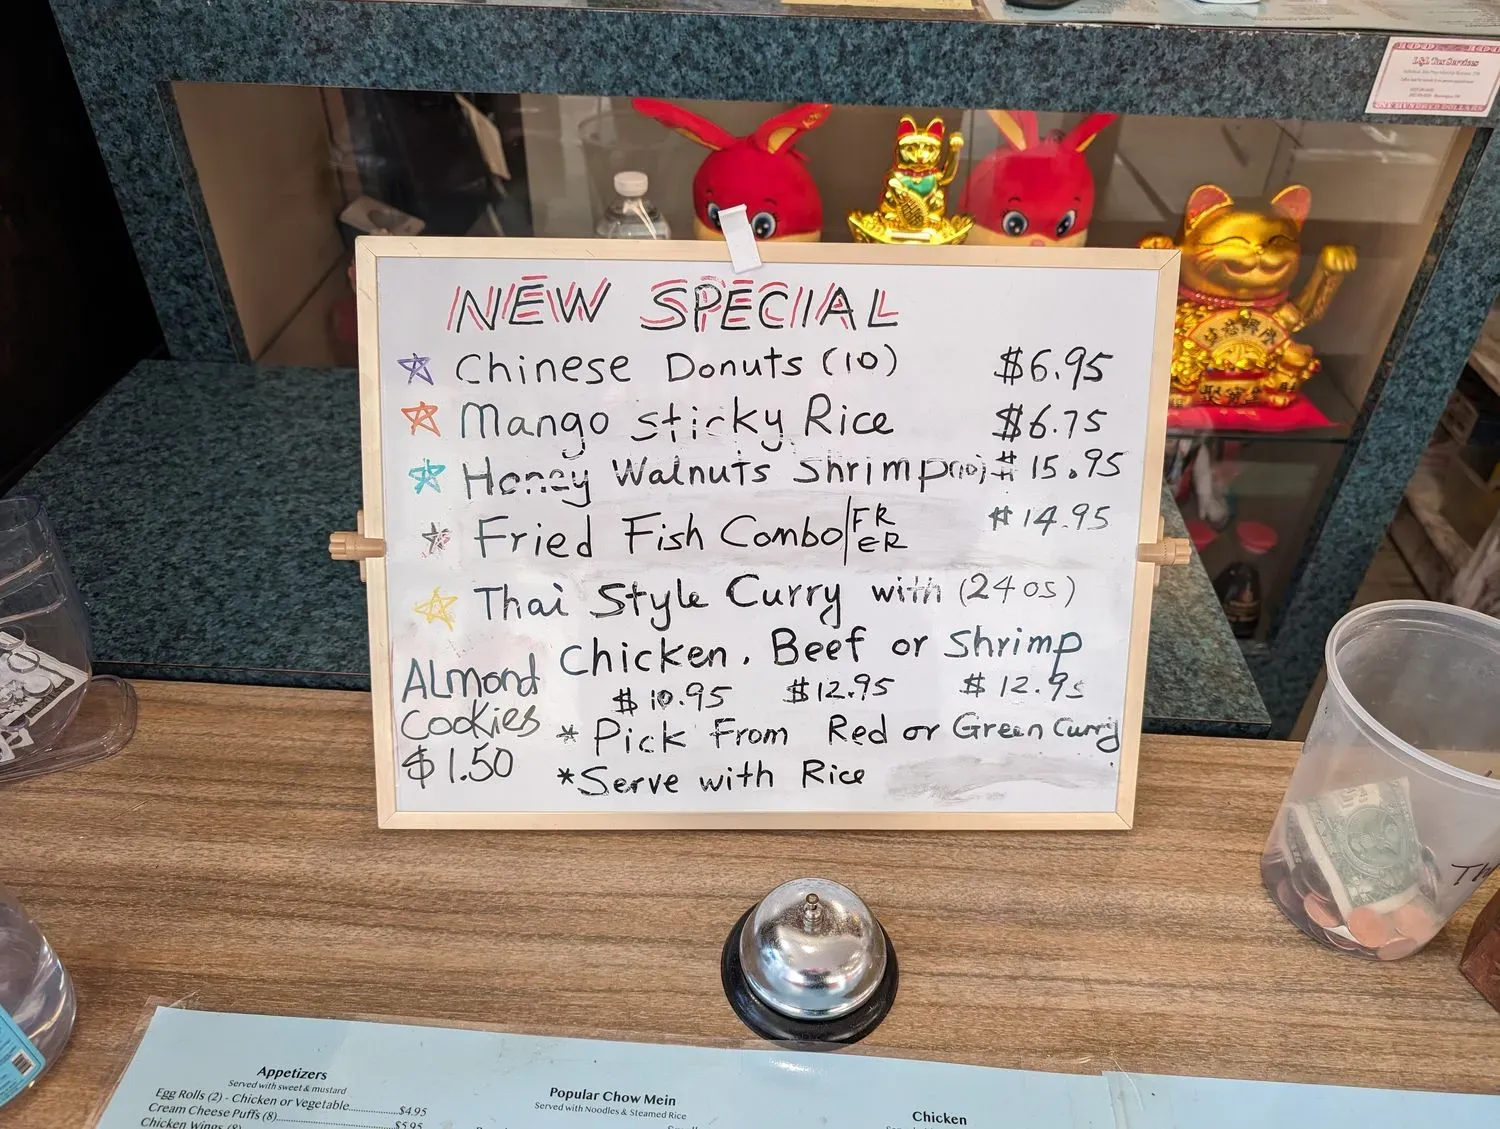 L&L Tax Services
NEW SPECIAL
Chinese Donuts (10) $6.95
Mango sticky Rice $6.75
Honey Walnuts Shrimp (10) $15.95
Fried Fish Combo/FR $14.95
ER
Thai Style Curry with (24 os)
Chicken, Beef or Shrimp
$10.95 $12.95 $12.95
* Pick From Red or Green Curry
*Serve with Rice
ALmond
Cookies
$1.50
Appetizers
Served with sweet & mustard
Egg Rolls (2) - Chicken or Vegetable....................$4.95
Cream Cheese Puffs (8)....................$5.95
Chicken Wings (8)
Popular Chow Mein
Served with Noodles & Steamed Rice
Chicken